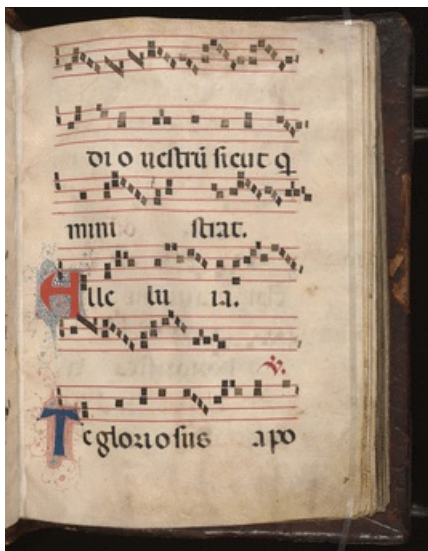 di o uestrū sicut q
mini strat.
Alle lu ia.
℣.
Te gloriosus apo